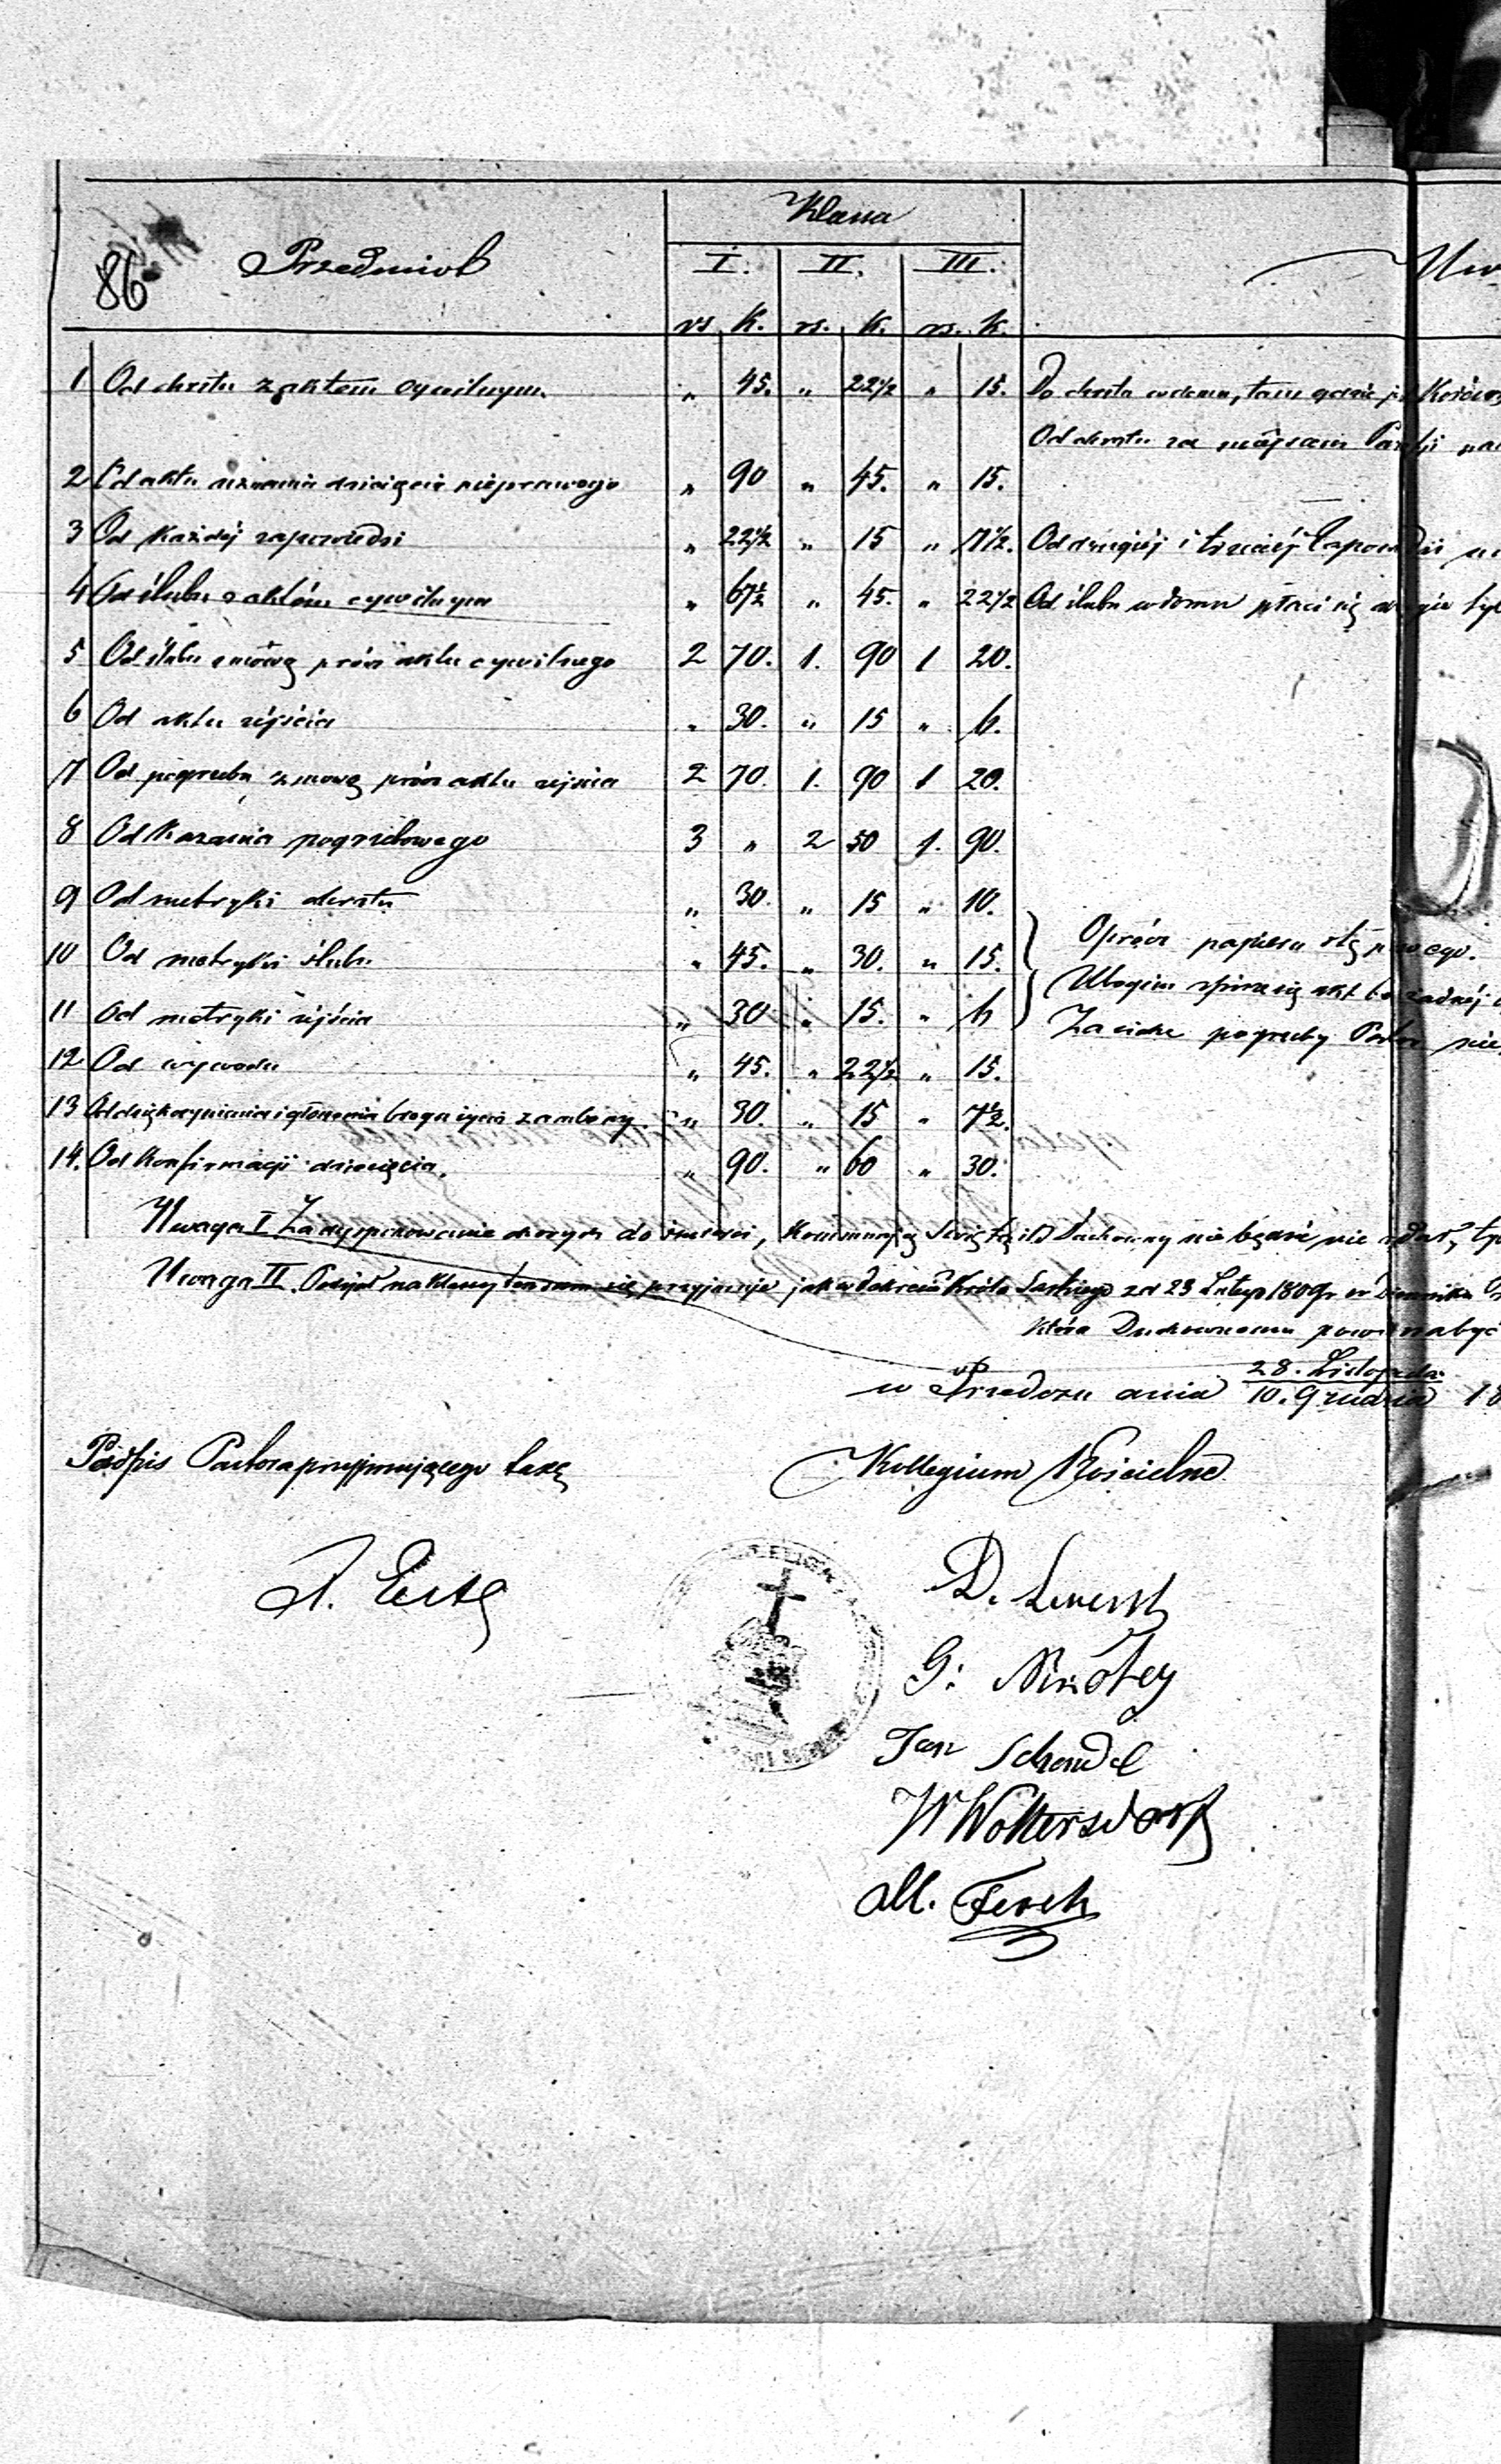 86 Przedmiot Klassa
I. II. III.
rs. K. rs. K. rs. K.
1 Od chrztu z aktem cywilnym. " 45. " 22½ " 15. Do chrztu w domu, tam gdzie jest
Od chrztu za miejscem Parafji
2 Od aktu uznania dziecięcia nieprawego " 90 " 45. " 15.
3 Od każdej zapowiedzi " 22½ " 15 " 7½. Od drugiéj i trzeciéj Zapowiedzi
4 Od ślubu z aktem cywilnym " 67½ " 45. " 22½ Od ślubu w domu płaci się
5 Od ślubu z mową prócz aktu cywilnego 2 70. 1. 90 1 20.
6 Od aktu zejścia " 30. " 15 " h.
7 Od pogrzebu z mową prócz aktu zejścia 2 70. 1. 90 1 20.
8 Od Kazania pogrzebowego 3 " 2 50 1. 90.
9 Od metryki chrztu " 30. " 15 " 10.
Oprócz papieru stęplowego.
10 Od metryki ślubu " 45. " 30. " 15.
Ubogim spisze się akt bez żadnéj
11 Od metryki zejścia " 30 " 15. " h
Za ciche pogrzeby Pastor nie
12 Od wywodu " 45. " 22½ " 15.
13 Od dziękczynienia i głoszenia z ambony. " 30. " 15 " 7½.
14. Od Konfirmacji dziecięcia. " 90. " 60 " 30.
Uwaga I Za dysponowanie chorych do śmierci, Kommunją Swiętą Duchowny nie będzie nic żądał,
Uwaga II. Podział na Klassy ten sam się przyjmuje jak w dekrecie Króla Saskiego zd 23 Lutego 1809 r w Dzienniku
która Duchownemu
w Przedczu dnia 28. Listopada
10. Grudnia 18
Podpis Pastora przyjmującego taxę Kollegium Kościelne
D.
G.
Jan Schendel
W Woltersdorf
M. Ferch